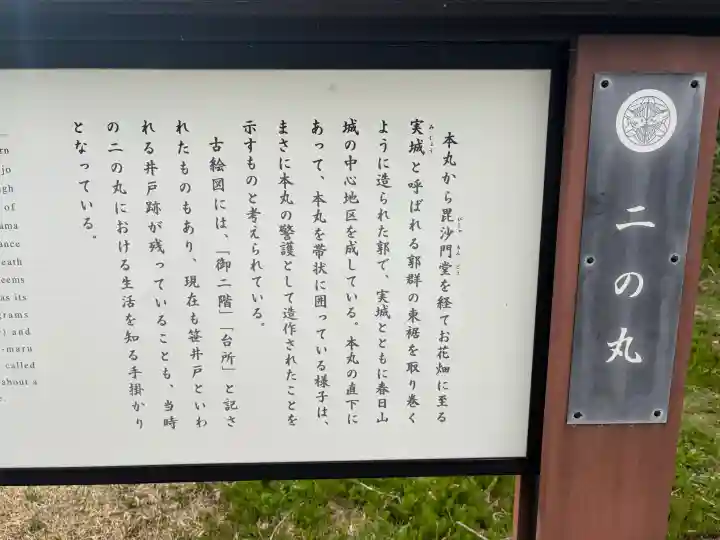 二の丸
本丸から毘沙門堂を経てお花畑に至る
実城と呼ばれる郭群の東裾を取り巻く
ように造られた郭で、実城とともに春日山
城の中心地区を成している。本丸の直下に
あって、本丸を帯状に囲っている様子は、
まさに本丸の警護として造作されたことを
示すものと考えられている。
古絵図には、「御二階」「台所」と記さ
れたものもあり、現在も笹井戸といわ
れる井戸跡が残っていることも、当時
の二の丸における生活を知る手掛かり
となっている。
rn
jo
gh
of
ama
ance
eath
eems
as its
grams
) and
-maru
called
about a
e.